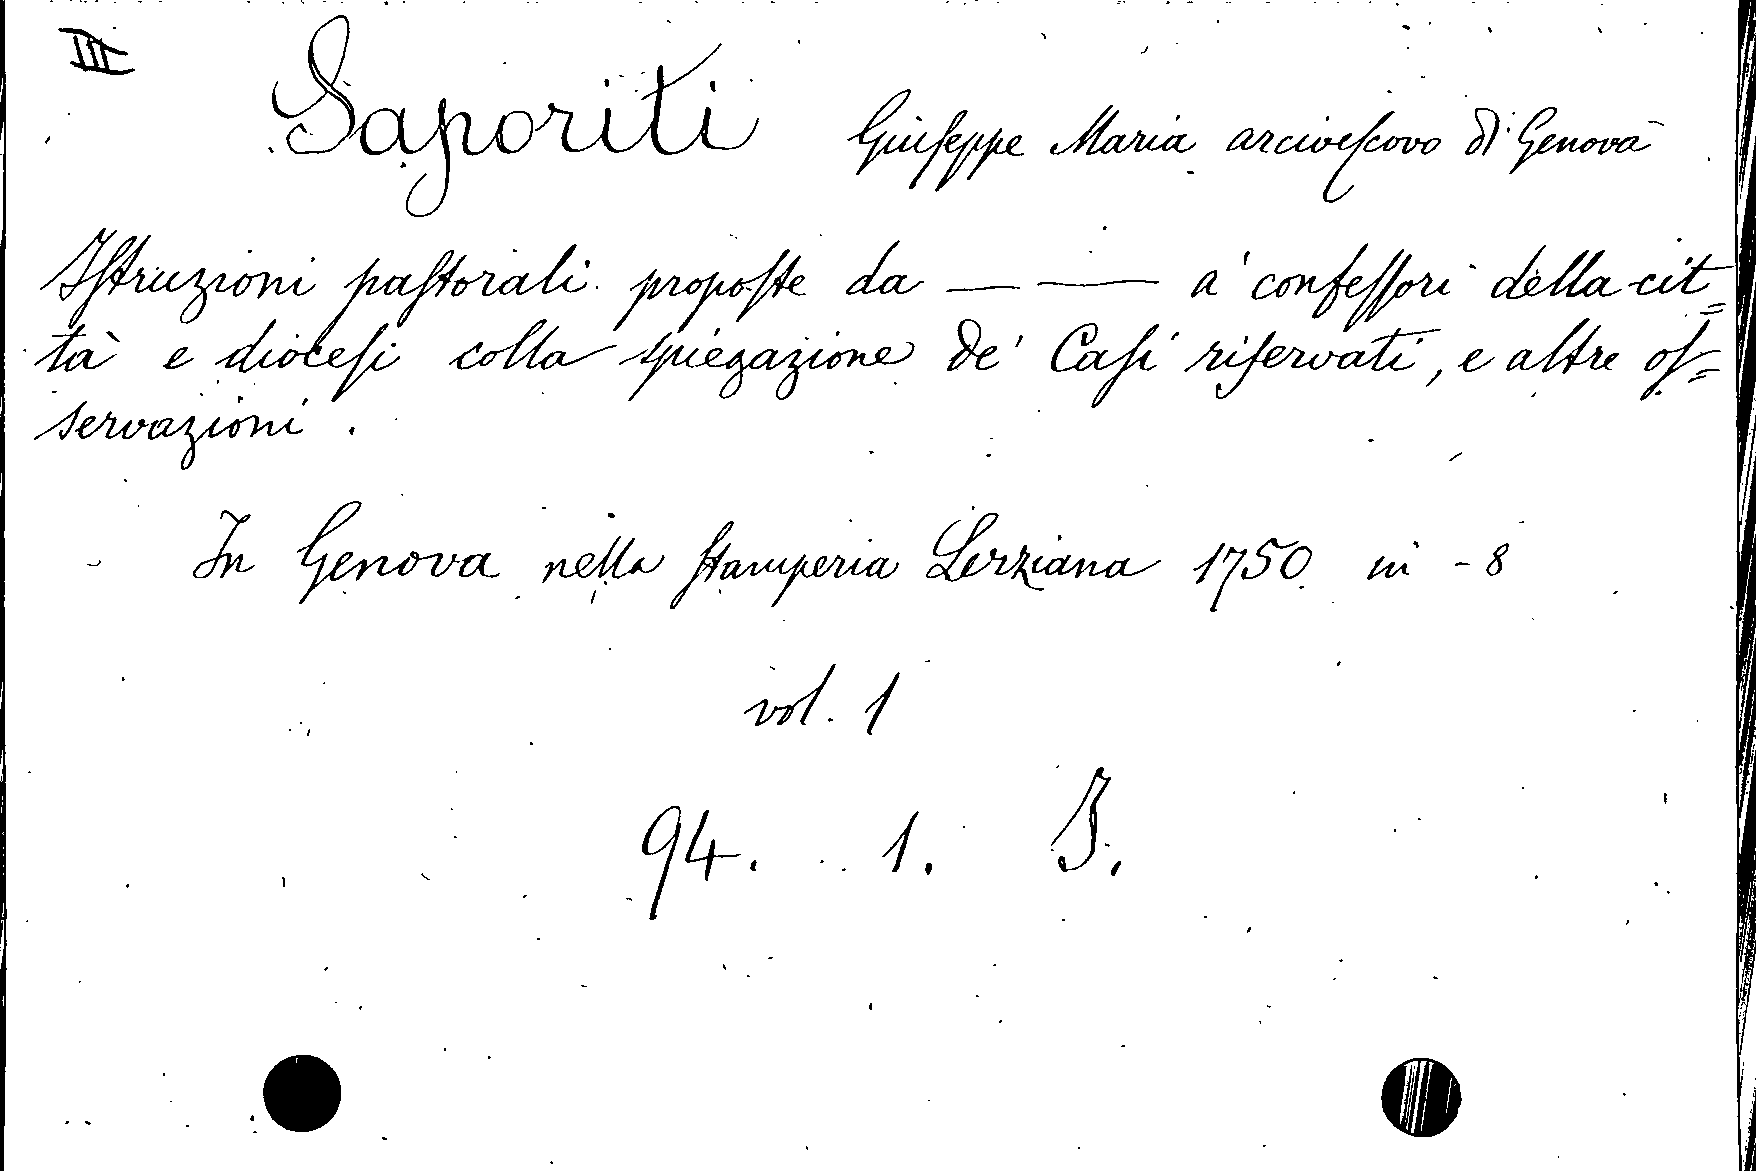 III
Saporiti Giuseppe Maria arcivescovo di Genova
Istruzioni pastorali proposte da — — a' confessori della cit=
tà e diocesi colla spiegazione de' Casi riservati, e altre os=
servazioni.
In Genova nella stamperia Lerziana 1750 in - 8
vol. 1
94. 1. I.